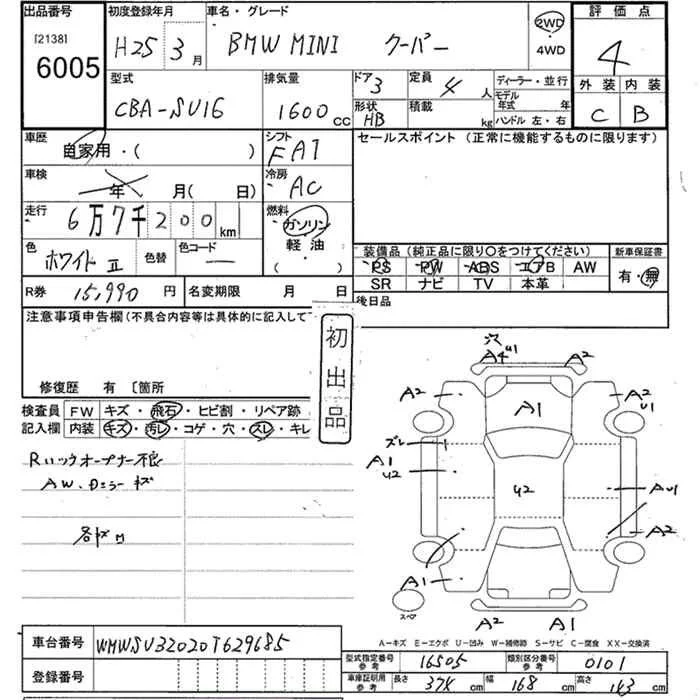 出品番号
[2138]
6005
初度登録年月
H25 3 月
車名・グレード
BMW MINI クーパー
2WD
4WD
評価点
4
外装 内装
C B
型式
CBA-SU16
排気量
1600 cc
ドア 3
形状 HB
定員 4 人
積載 kg
ディーラー・並行
モデル年式 年
ハンドル 左・右
車歴
自家用・( )
シフト
FAT
セールスポイント (正常に機能するものに限ります)
車検
年 月(日)
冷房
AC
走行
6万7千200km
燃料
ガソリン
軽油
( )
色
ホワイトII
色替
色コード
装備品 (純正品に限り○をつけてください)
PS PW ABS エアB AW
SR ナビ TV 本革
新車保証書
有・無
R券 15,990 円
名変期限 月 日
後日品
注意事項申告欄(不具合内容等は具体的に記入して
修復歴 有 〔箇所
初出品
検査員記入欄
FW キズ・飛石・ヒビ割・リペア跡
内装 キズ・汚レ・コゲ・穴・スレ・キレ
Rハッチオープナー不良
AW、Dミラーキズ
穴
A4 U1
A2
A2
A2
U1
A1
ズレ
A1
U2
U2
AU1
A2
A1
スペア
A2
A1
A-キズ E-エクボ U-凹み W-補修跡 S-サビ C-腐食 XX-交換済
車台番号 WMWSU32020T629685
型式指定番号 参考 16505
類別区分番号 参考 0101
登録番号
車庫証明用 参考 長さ 374 cm 幅 168 cm 高さ 163 cm